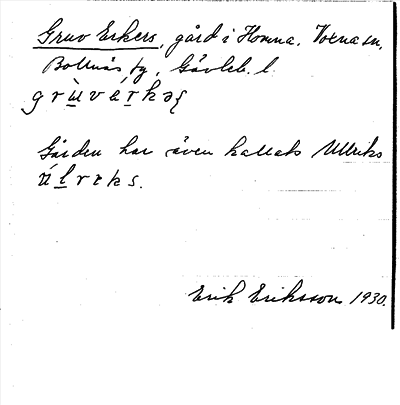 Gruv Erkers, gård i Homna, Voxna sn,
Bollnäs fg, Gävleb. l.
grùvæ̀rkəʂ
Gården har även kallats Ullriks
ùlrıks.
Erik Eriksson 1930.